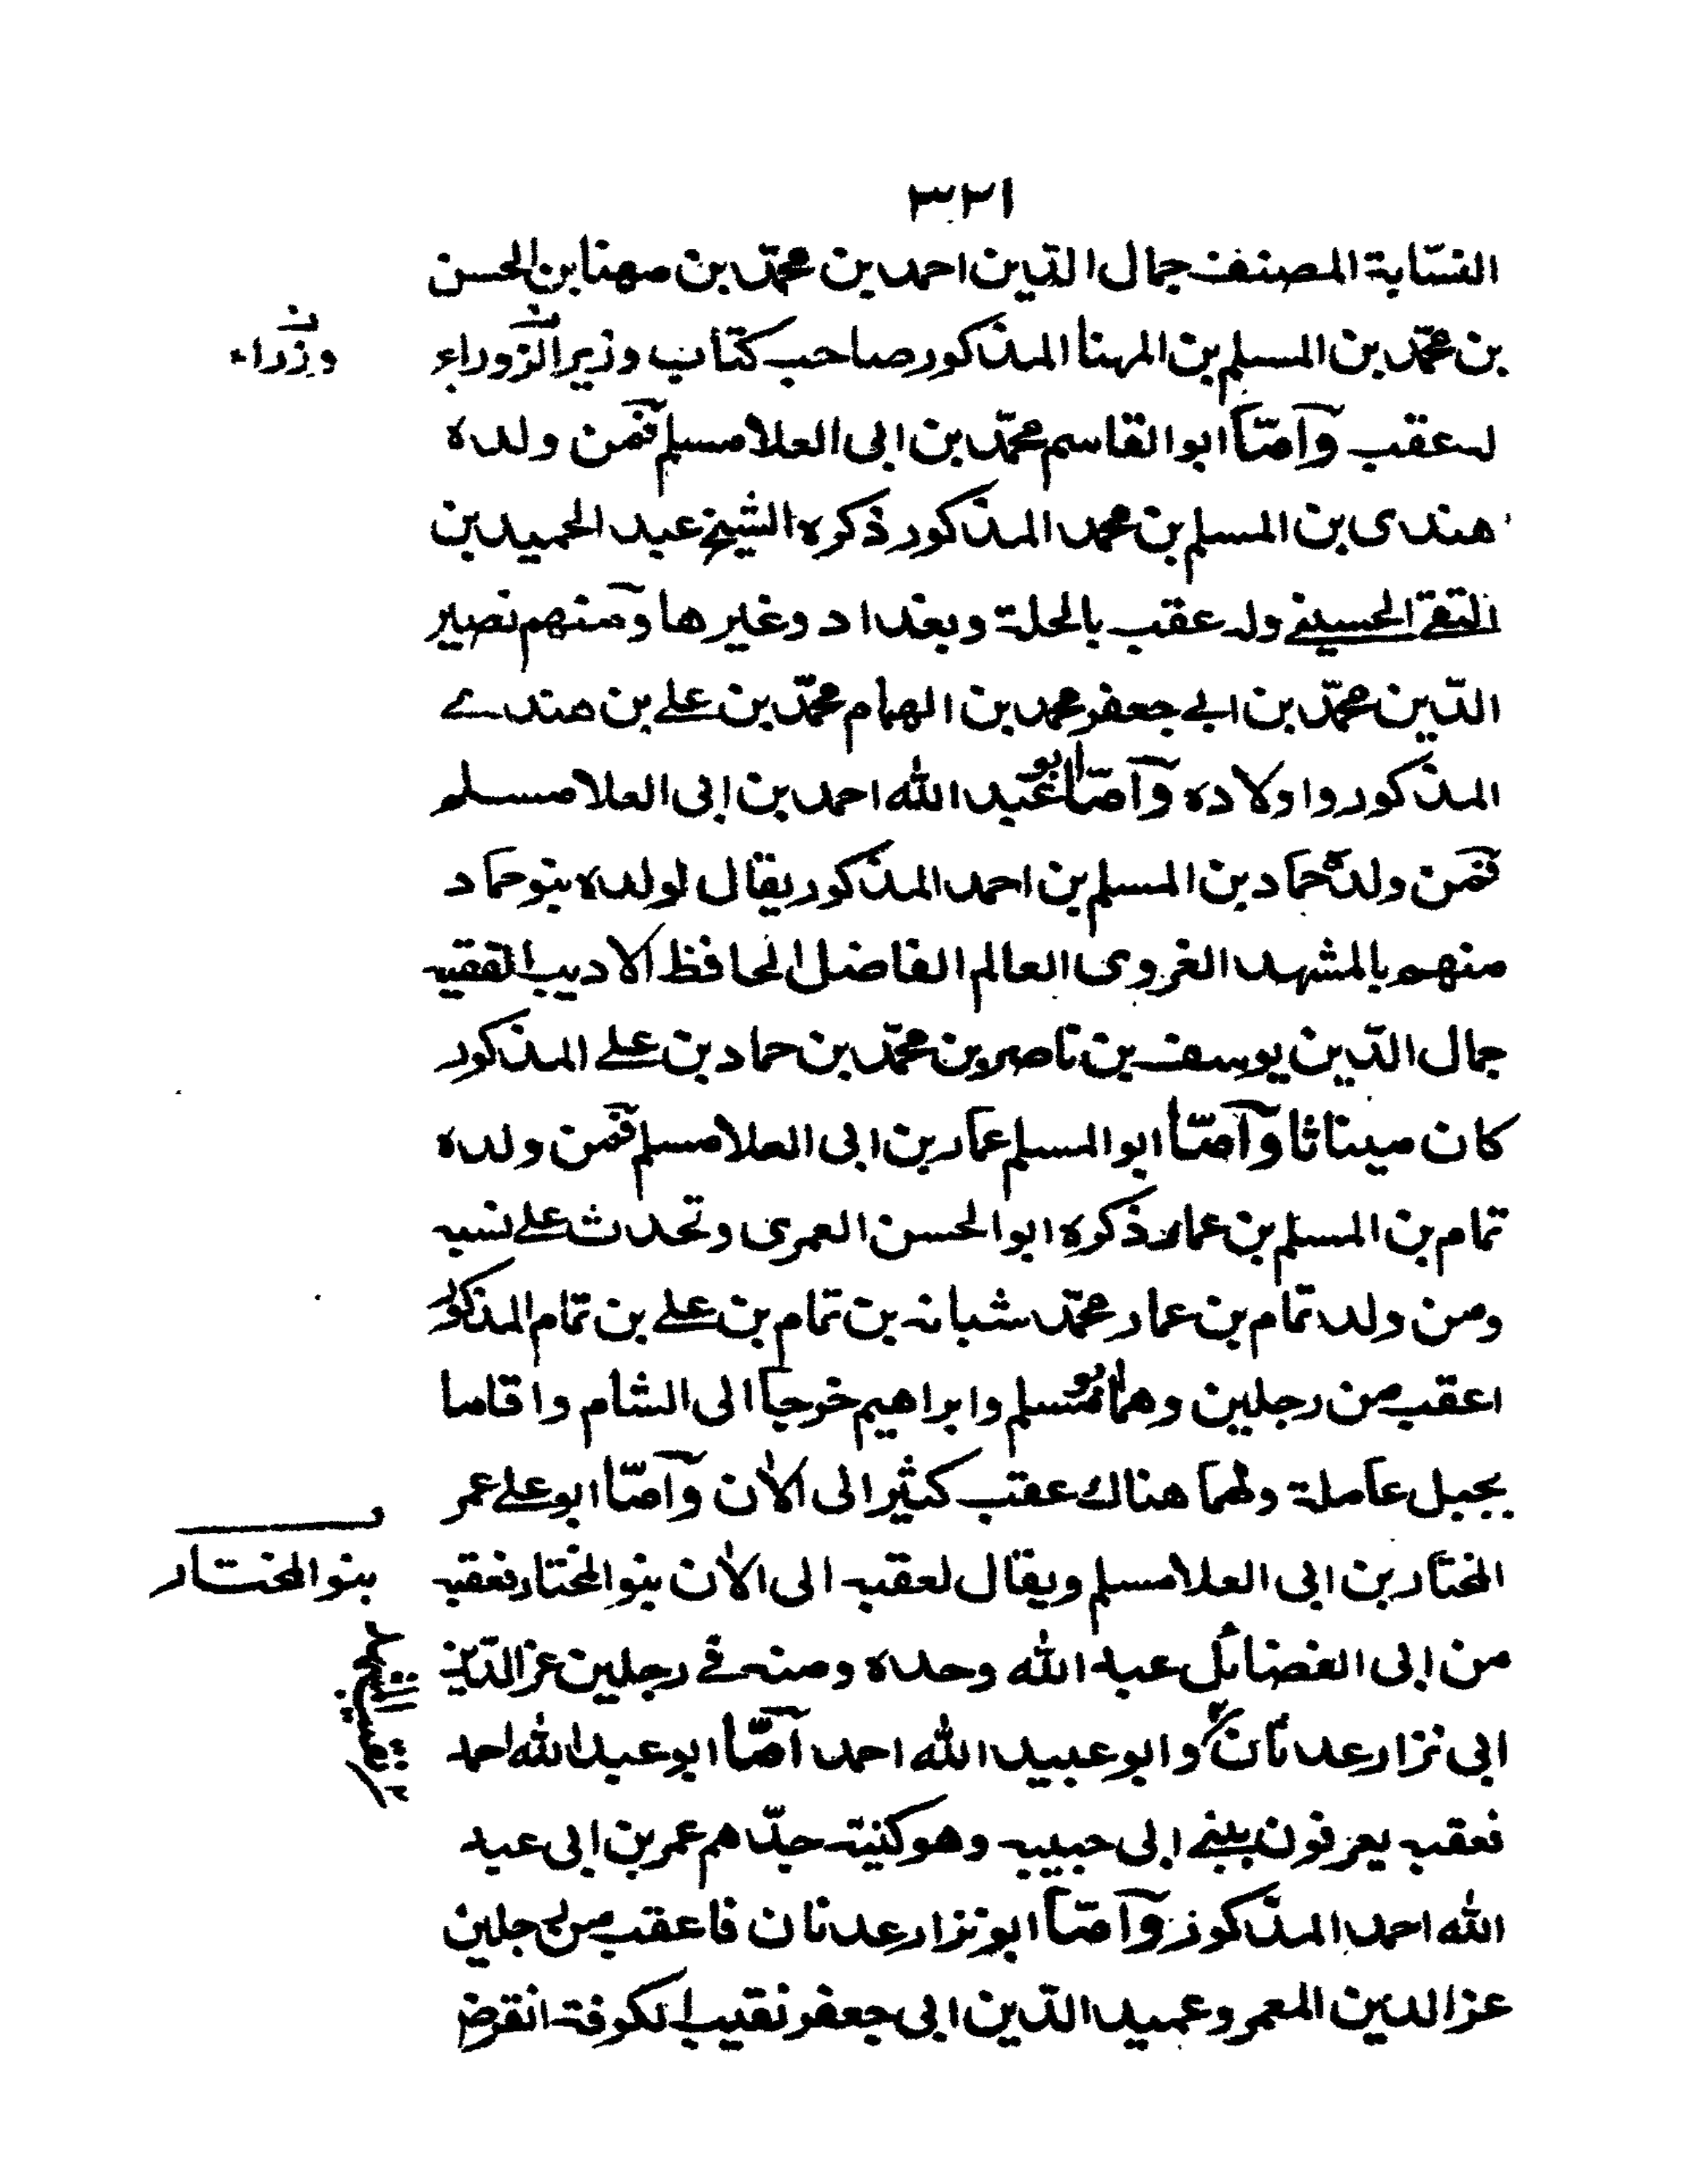 ٣٢١
النسّابة المصنف جمال الدّين احمد بن محمّد بن مهنا بن الحسن
بن محمّد بن المسلم بن المهنا المذكور صاحب كتاب وزير الزوراء
ن
وزراء
له عقب وآمّا ابو القاسم محمّد بن ابى العلا مسلم فمن ولده
هندى بن المسلم بن محمد المذكور ذكره الشيخ عبد الحميد بن
التقى الحسينے وله عقب بالحلة وبغداد وغيرها ومنهم نصير
الدّين محمّد بن ابے جعفر محمد بن الهمام محمّد بن علے بن هندے
المذكور واولاده وآمّا ابو عبد الله احمد بن ابى العلا مسلم
فمن ولده حماد بن المسلم بن احمد المذكور يقال لولده بنو حماد
منهم بالمشهد الغروى العالم الفاضل الحافظ الاديب الفقيه
جمال الدّين يوسف بن ناصر بن محمّد بن حماد بن علے المذكور
كان ميناثا وآمّا ابو المسلم عمار بن ابى العلا مسلم فمن ولده
تمام بن المسلم بن عمار ذكره ابو الحسن العمرى وتحدث علے نسبه
ومن ولد تمام بن عمار محمّد شبانه بن تمام بن علے بن تمام المذكور
اعقب من رجلين وهما ابو مسلم وابراهيم خرجا الى الشام واقاما
بجبل عاملة ولهما هناك عقب كثير الى الآن وآمّا ابو علے عمر
المختار بن ابى العلا مسلم ويقال لعقبه الى الآن بنو المختار فعقبه
بنو المختار
من ابى الفضائل عبد الله وحده ومنه فے رجلين عز الدّين
ابى نزار عدنان وابو عبيد الله احمد آمّا ابو عبد الله احمد
فعقبه يعرفون ببنے ابى حبيبه وهو كنية جدّهم عمر بن ابى عبد
الله احمد المذكور وآمّا ابو نزار عدنان فاعقب من رجلين
عز الدين المعمر وعميد الدّين ابى جعفر نقيب الكوفة انقرض